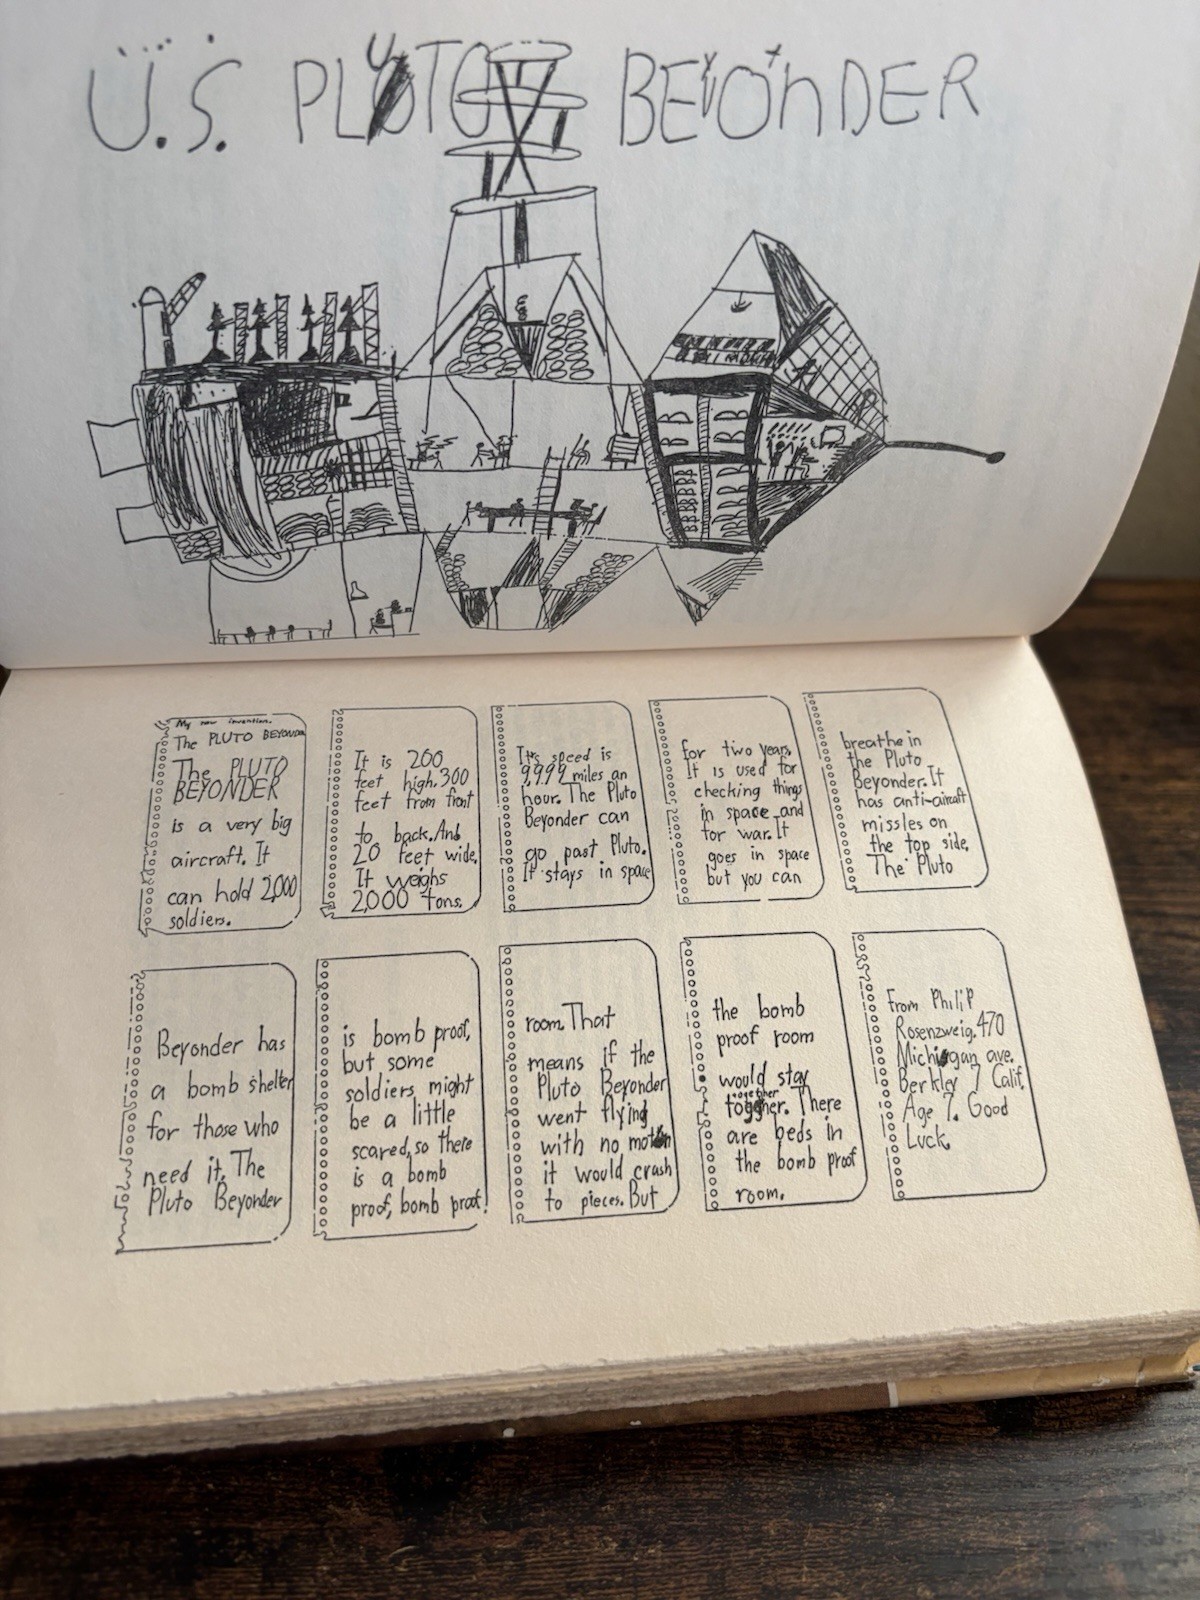 U.S. PLUTO BEYOnDER
My new invention.
The PLUTO BEYONDER
The PLUTO
BEYONDER
is a very big
aircraft. It
can hold 2,000
soldiers.
It is 200
feet high. 300
feet from front
to back. And
20 feet wide.
It weighs
2,000 tons.
It's speed is
9,999 miles an
hour. The Pluto
Beyonder can
go past Pluto.
It stays in space
for two years.
It is used for
checking things
in space and
for war. It
goes in space
but you can
breathe in
the Pluto
Beyonder. It
has anti-aircraft
missles on
the top side.
The Pluto
Beyonder has
a bomb shelter
for those who
need it. The
Pluto Beyonder
is bomb proof,
but some
soldiers might
be a little
scared, so there
is a bomb
proof, bomb proof!
room. That
means if the
Pluto Beyonder
went flying
with no motion
it would crash
to pieces. But
the bomb
proof room
would stay
together
together. There
are beds in
the bomb proof
room.
From Philip
Rosenzweig. 470
Michigan ave.
Berkley 7 Calif.
Age 7. Good
Luck.